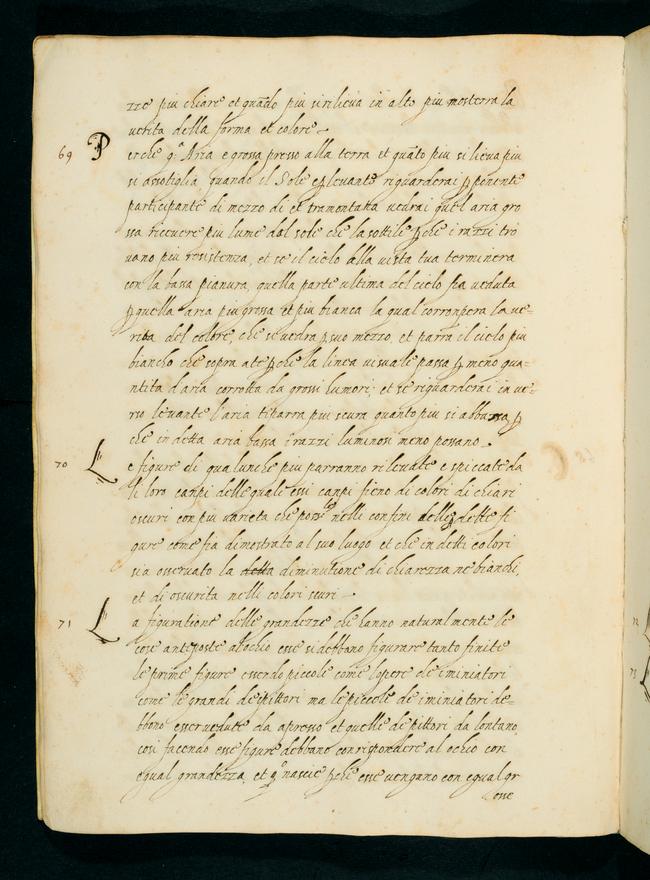 zze piu chiare et quãdo piu si rilieva in alto piu mosterra la
verita della forma et colore
69 Perche q.ª Aria e grossa presso alla terra et quãto piu si lieva piu
si assotiglia quando il Sole e ꝑ levante riguarderai ꝑ ponente
participante di mezzo di et tramontana vedrai quel aria gro
ssa ricevere piu lume dal sole che la sottile ꝑche i razzi tro
vano piu resistenza, et se il cielo alla vista tua terminera
con la bassa pianura, quella parte ultima del cielo fia veduta
ꝑ quella aria piu grossa et piu bianca la qual corronpera la ve=
rita del colore, che se vedra ꝑ suo mezzo, et parra il cielo piu
biancho che sopra a te ꝑche la linea visuale passa ꝑ meno qua=
ntita d'aria corrotta da grossi humori: et se riguarderai in ve=
rso levante l'aria ti parra piu scura quãnto piu si abbassa ꝑ
che in detta aria bassa i razzi luminosi meno passano
70 Le figure di qualunche piu parranno rilevate e spiccate da
li loro canpi delle quale essi canpi fieno di colori di chiari
oscuri con piu varieta che nelli confini delle dette fi
gure come fia dimostrato al suo luogo et che in detti colori
sia osservato la detta diminutione di chiarezza ne bianchi,
et di oscurita nelli colori scuri
71 La figuratione delle grandezze che hanno naturalmente le
cose anteposte al ochio esse si debbono figurare tanto finite
le prime figure essendo piccole come lopere de iminiatori
come le grandi de pittori ma le piccole de iminiatori de=
bbono esser vedute da apresso et quelle de pittori da lontano,
cosi facendo esse figure debbano corrispondere al ochio con
equal grandezza, et q.º nascie ꝑche esse vengano con equal gr
osse
72
73